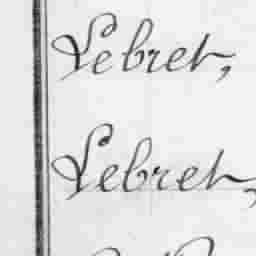 Lebret,
Lebret,